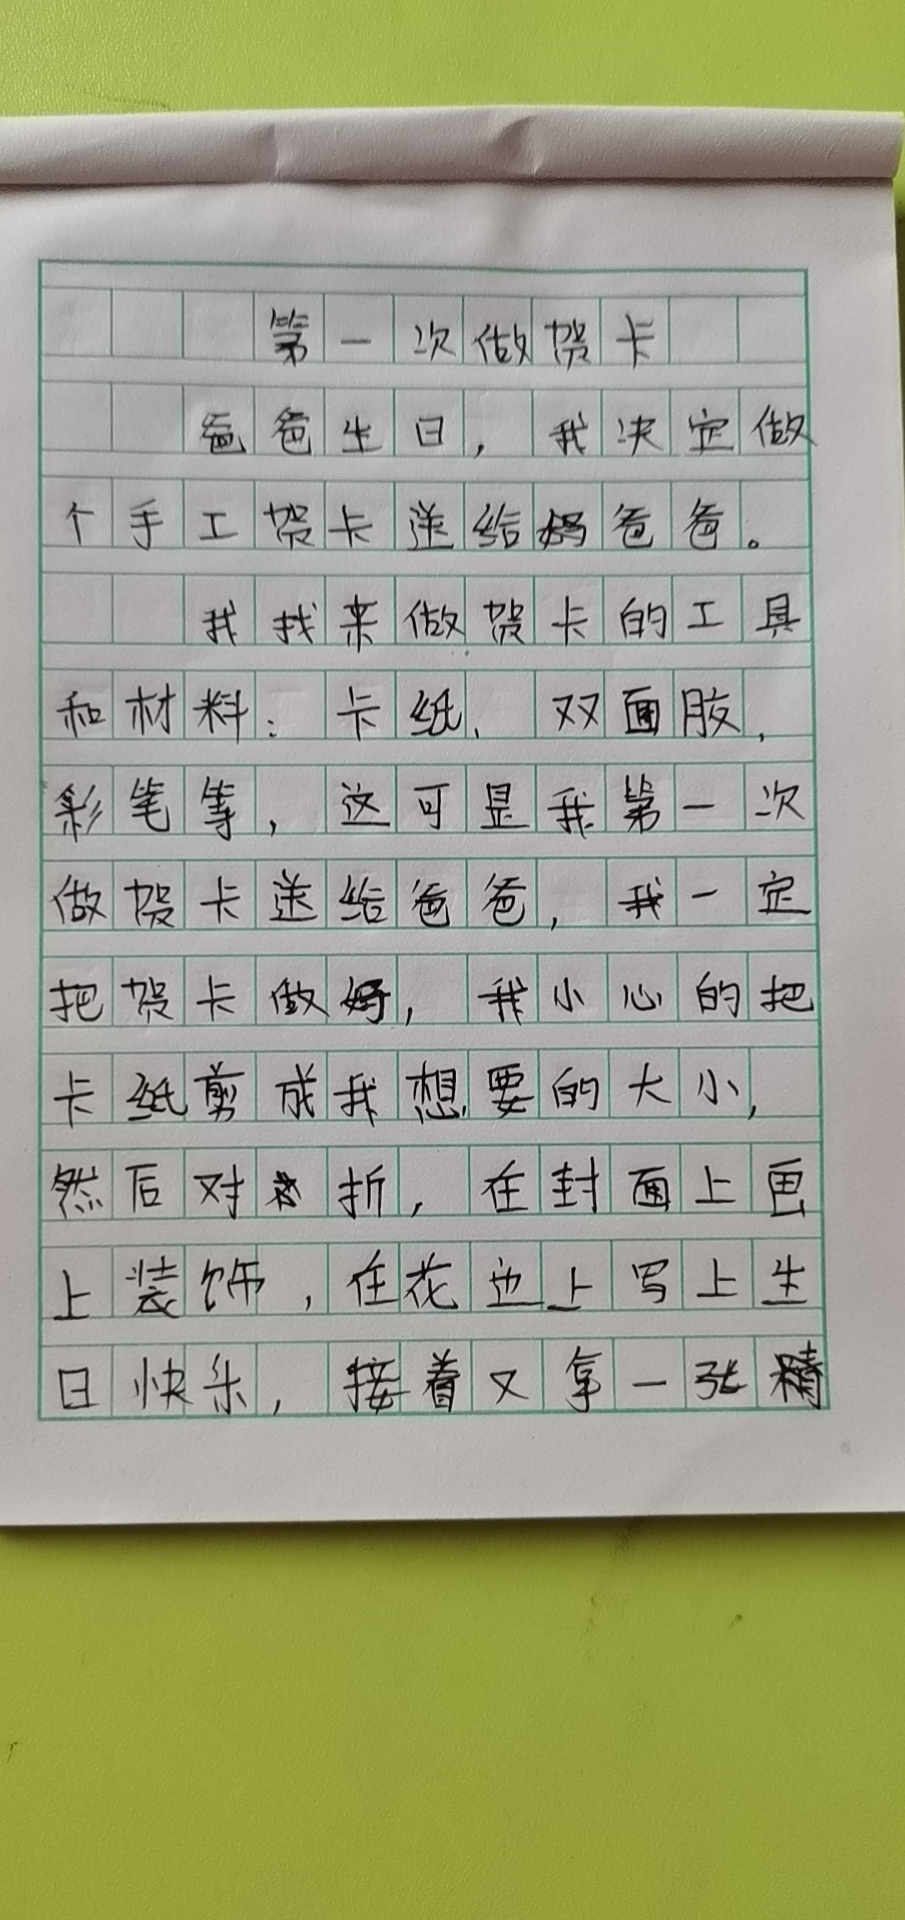 第一次做贺卡
爸爸生日，我决定做
个手工贺卡送给妈爸爸。
我找来做贺卡的工具
和材料：卡纸、双面胶、
彩笔等，这可是我第一次
做贺卡送给爸爸，我一定
把贺卡做好，我小心的把
卡纸剪成我想要的大小，
然后对折，在封面上画
上装饰，在花边上写上生
日快乐，接着又拿一张精